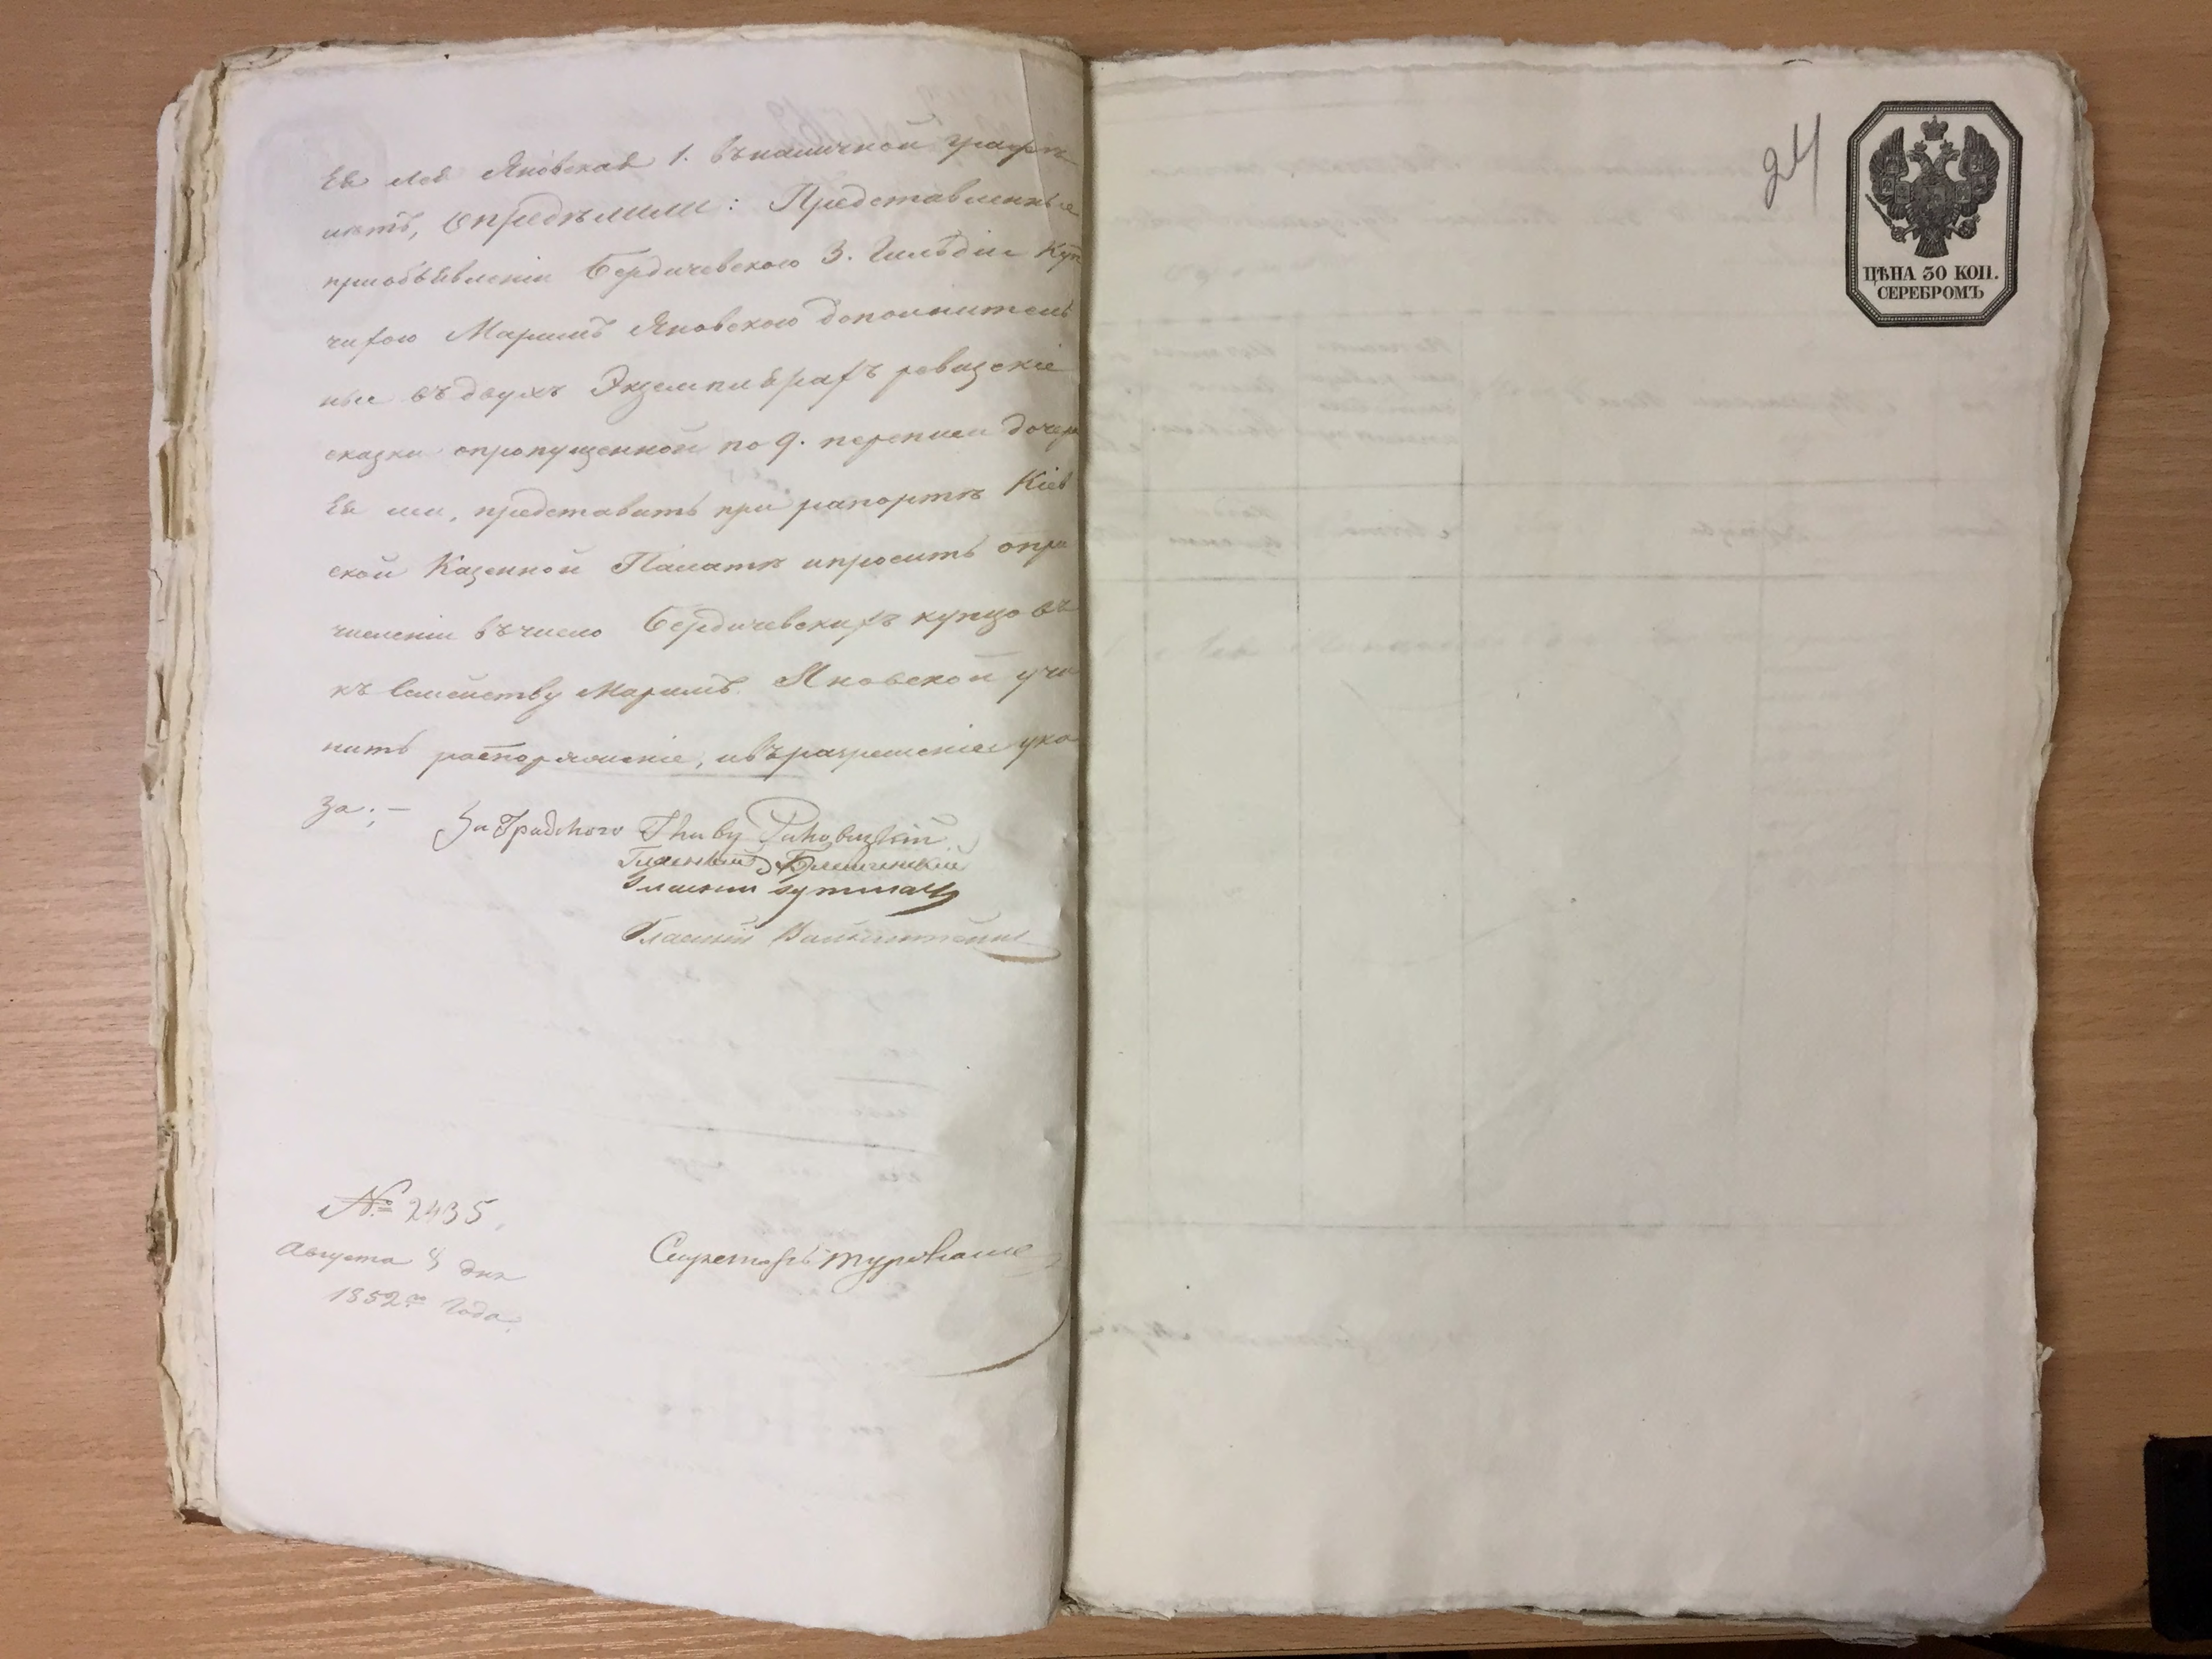 Ея Лея Яновская 1. въ наличной графѣ
нѣтъ, Опредѣлили: Представленные
при объявленіи Бердичевскою 3. Гильдіи Куп
чихою Маримъ Яновскою дополнитель
ные въ двухъ Экземплярахъ ревизскіе
сказки о пропущенной по 9. переписи дочери
Ея Леи, представить при рапортѣ Кіев
ской Казенной Палатѣ и просить о при
численіи въ число Бердичевскихъ купцовъ
къ Семейству Маримъ Яновской учи
нить распоряженіе, и въ разрешеніе ука
за;—
За Градского Главу
Гласный
Гласный Гутман
Гласный
№ 2435
Августа 8 дня
1852го Года.
Секретарь
24
ЦѢНА 30 КОП.
СЕРЕБРОМЪ